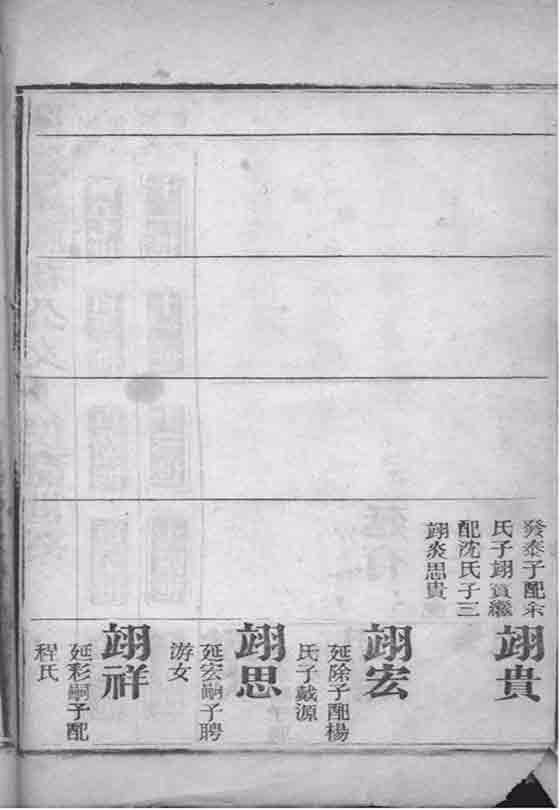 發泰子配余
氏子翊賓繼
配沈氏子三
翊炎思貴
翊貴
翊宏
延除子配楊
氏子戴源
翊思
延宏嗣子聘
游女
翊祥
延彩嗣子配
程氏